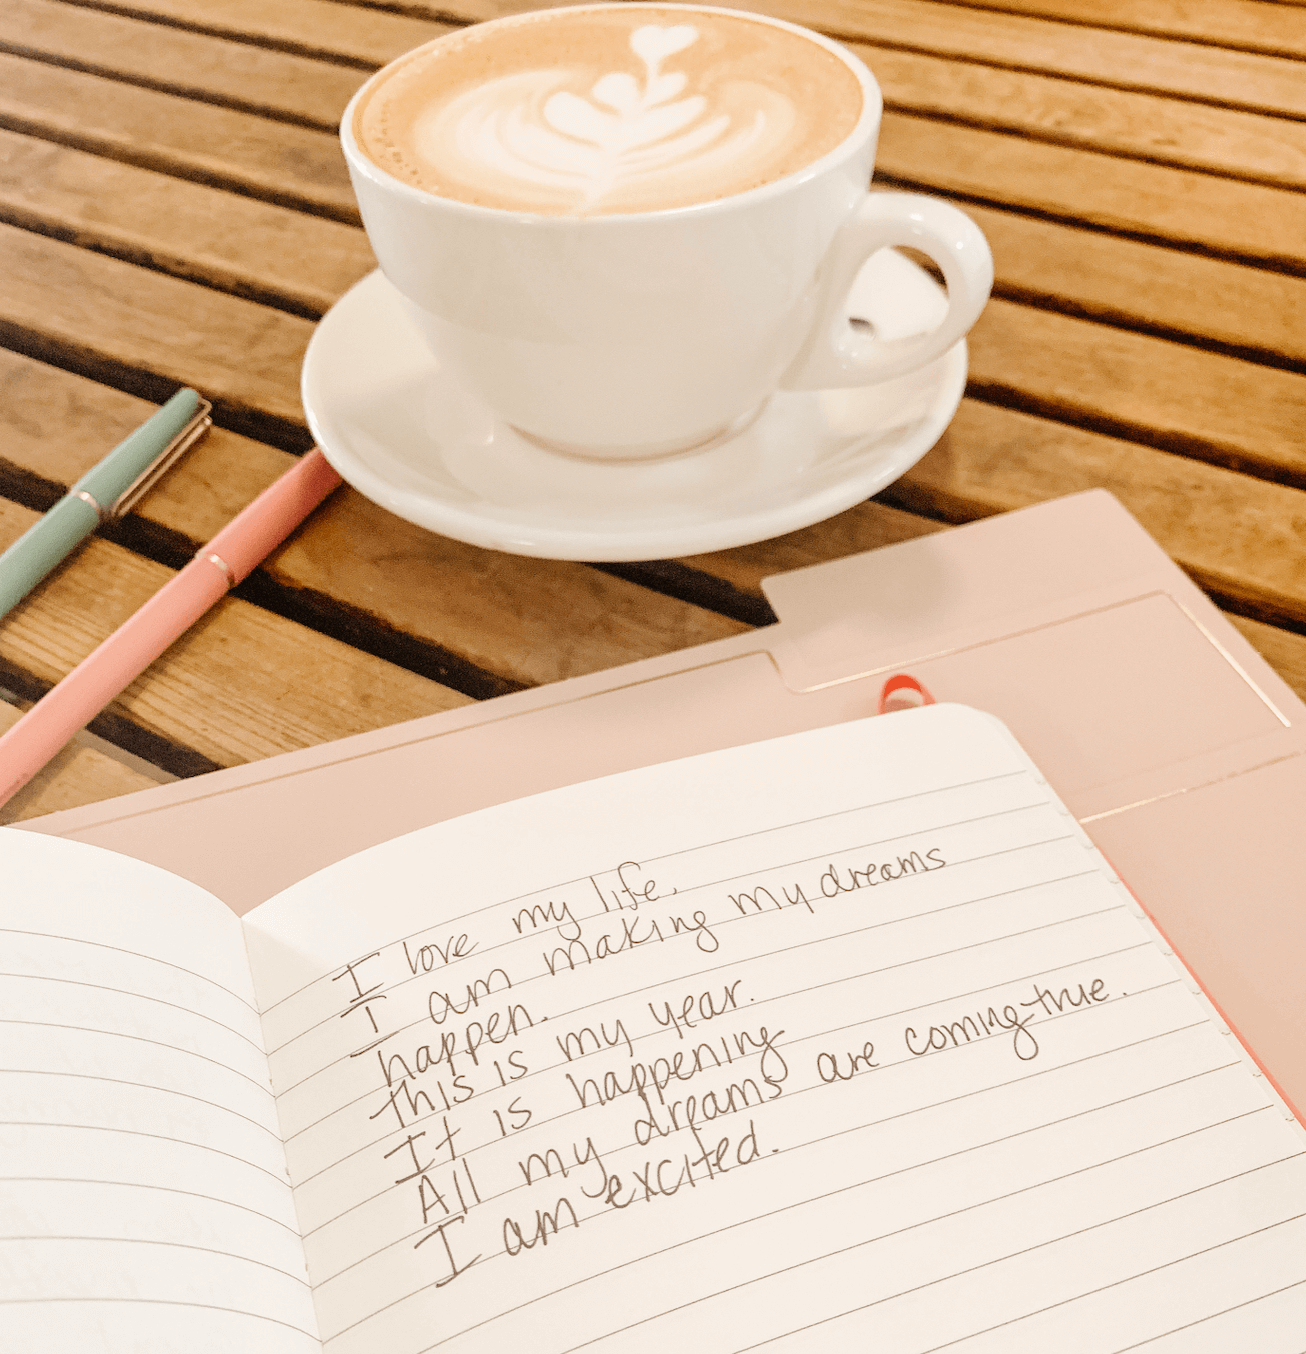 I love my life.
I am making my dreams
happen.
this is my year.
It is happening
All my dreams are coming true.
I am excited.